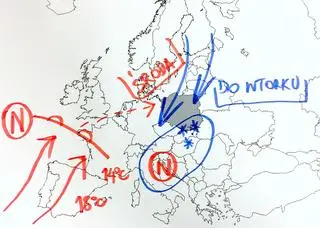 ŚRODA
DO WTORKU
N
N
14°C
18°C